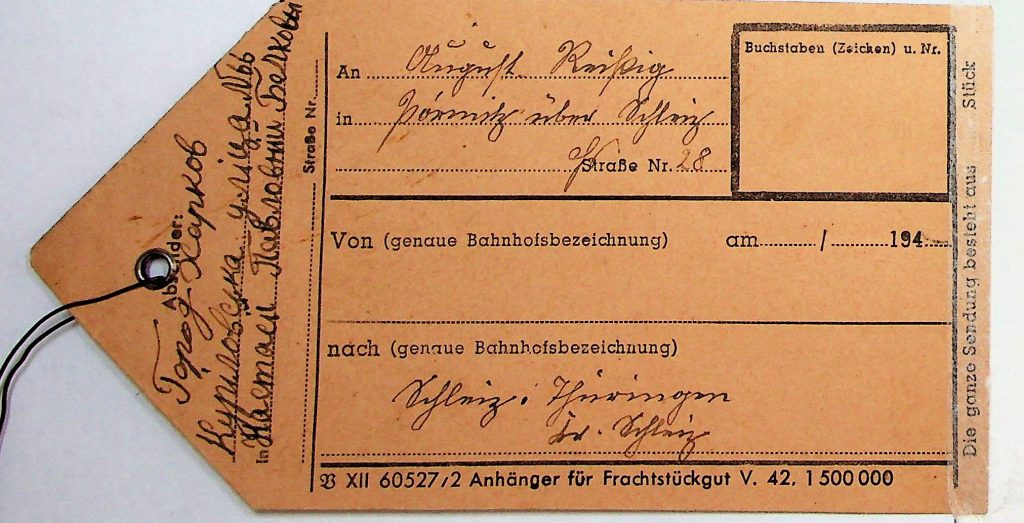 An August Reißig
in Pörmitz über Schleiz
Straße Nr. 28
Buchstaben (Zeichen) u. Nr.
Von (genaue Bahnhofsbezeichnung) am / 194
nach (genaue Bahnhofsbezeichnung)
Schleiz i. Thüringen
Kr. Schleiz
𝔙 XII 60527/2 Anhänger für Frachtstückgut V. 42. 1 500 000
Absender:
Город Харков
Куриловска улiца №66
in
Павловни Белковы
Straße Nr.
Die ganze Sendung besteht aus Stück